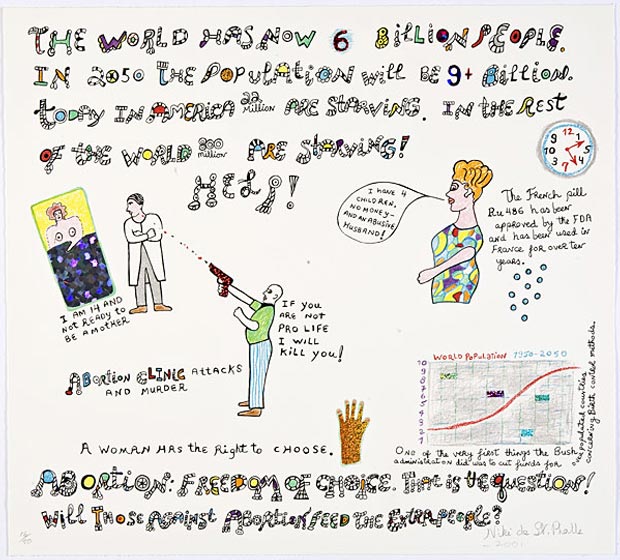 THE WORLD HAS NOW 6 BILLION PEOPLE.
IN 2050 THE POPULATION WILL BE 9+ BILLION.
TODAY IN AMERICA 22 Million ARE STARVING. IN THE REST
OF THE WORLD 800 million ARE STARVING!
HELP!
12
9 1
10 5
3 4
2 7
I HAVE 4
CHILDREN,
NO MONEY-
AND AN ABUSIVE
HUSBAND!
The French pill
Ru 486 has been
approved by the FDA
and has been used in
France for over ten
years.
I AM 14 AND
NOT READY TO
BE A MOTHER
IF YOU
ARE NOT
PRO LIFE
I WILL
KILL YOU!
ABORTION CLINIC ATTACKS
AND MURDER
WORLD POPULATION 1950-2050
10
9
8
7
6
5
4
3
2
1
A WOMAN HAS THE RIGHT TO CHOOSE.
One of the very first things the Bush
administration did was to cut funds for
overpopulated countries
concerning Birth control methods.
ABORTION: FREEDOM OF CHOICE. THAT IS THE QUESTION!
WILL THOSE AGAINST ABORTION FEED THE EXTRA PEOPLE?
Niki de St. Phalle
2001